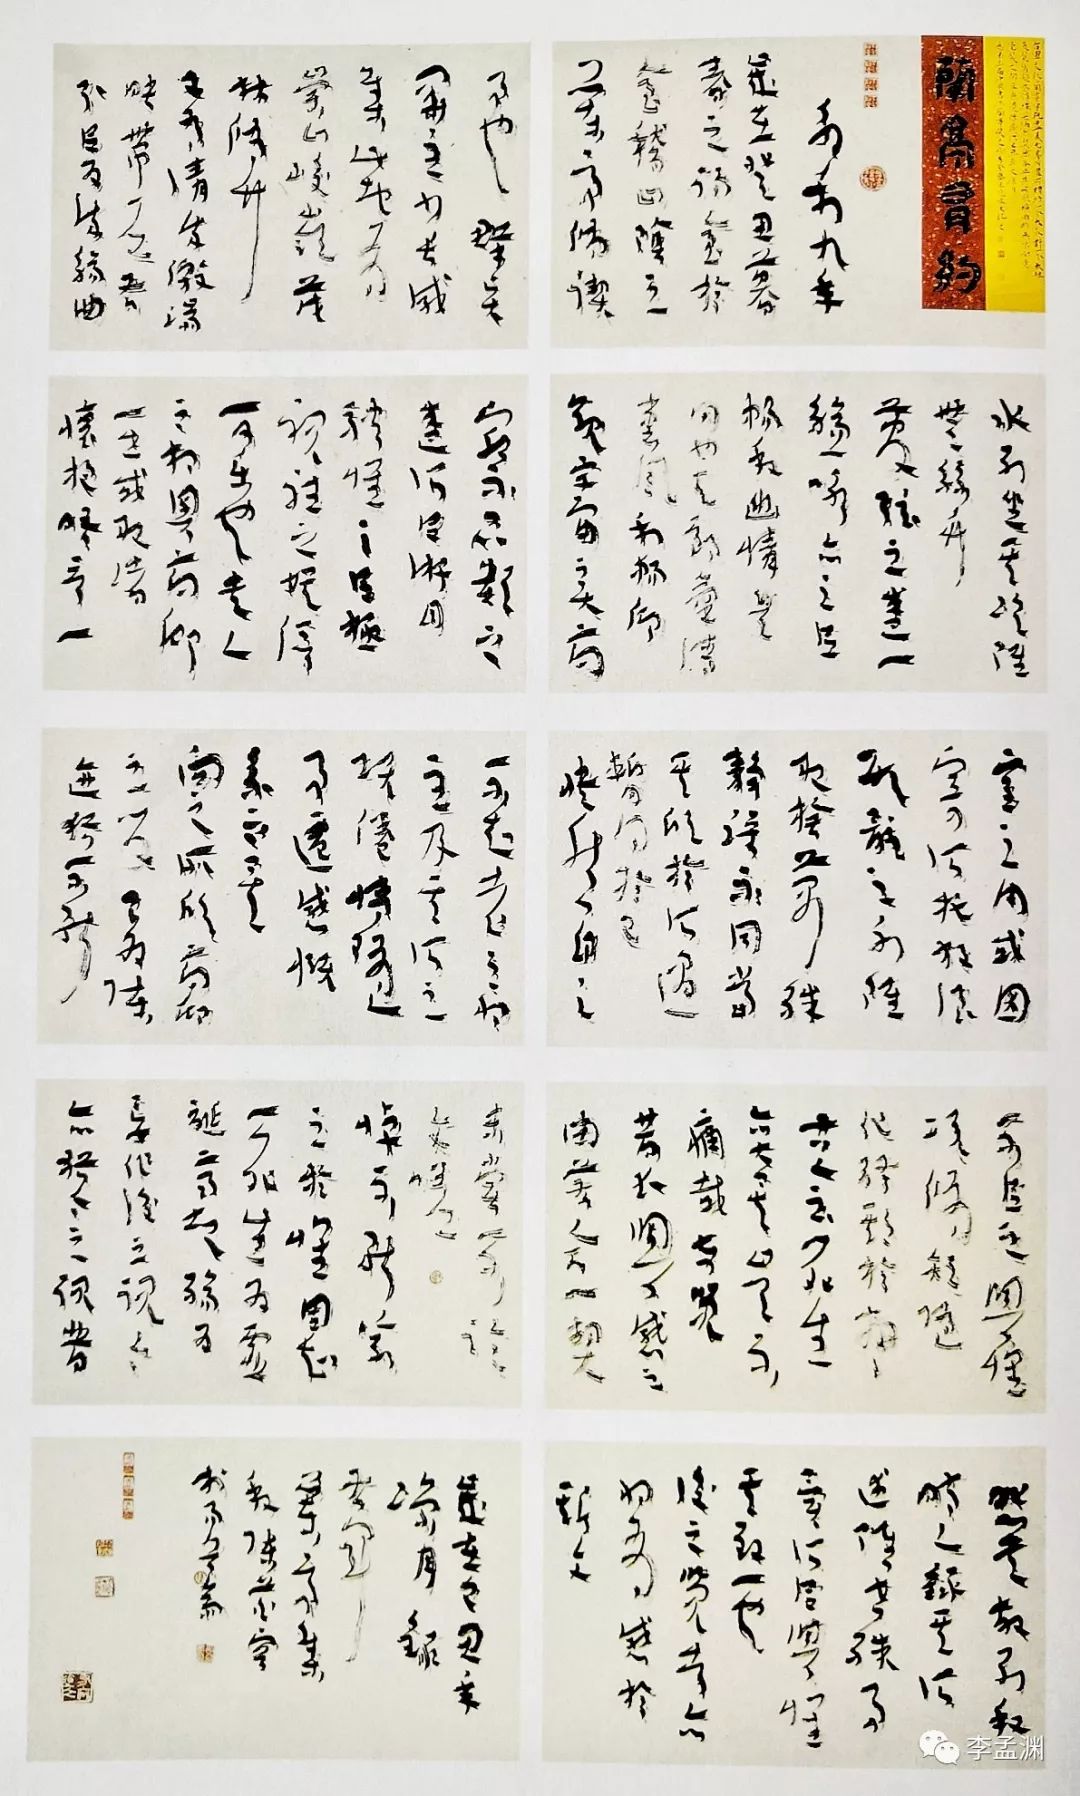 永和九年
歲在癸丑暮
春之初會於
會稽山陰之
蘭亭脩禊
事也羣賢
畢至少長咸
集此地有
崇山峻嶺茂
林脩竹
又有清流激湍
映帶左右
引以為流觴曲
水列坐其次雖
無絲竹
管弦之盛一
觴一詠亦足以
暢敘幽情是
日也天朗氣清
惠風和暢仰
觀宇宙之大俯
察品類之
盛所以遊目
騁懷足以極
視聽之娛信
可樂也夫人
之相與俯仰
一世或取諸
懷抱晤言一
室之內或因
寄所託放浪
形骸之外雖
取捨萬殊
靜躁不同當
其欣於所遇
暫得於己
快然自足
不知老之將
至及其所之
既倦情隨
事遷感慨
係之矣
向之所欣俯仰
之間已為陳
跡猶不能
不以之興懷
況脩短隨
化終期於盡
古人云死生
亦大矣豈不
痛哉每覽
昔人興感之
由若合一契
未嘗不臨
文嗟
悼不能喻
之於懷固知
一死生為虛
誕齊彭殤為
妄作後之視今
亦猶今之視昔
悲夫故列敘
時人錄其所
述雖世殊事
異所以興懷
其致一也
後之覽者亦
將有感於
斯文
李孟渊